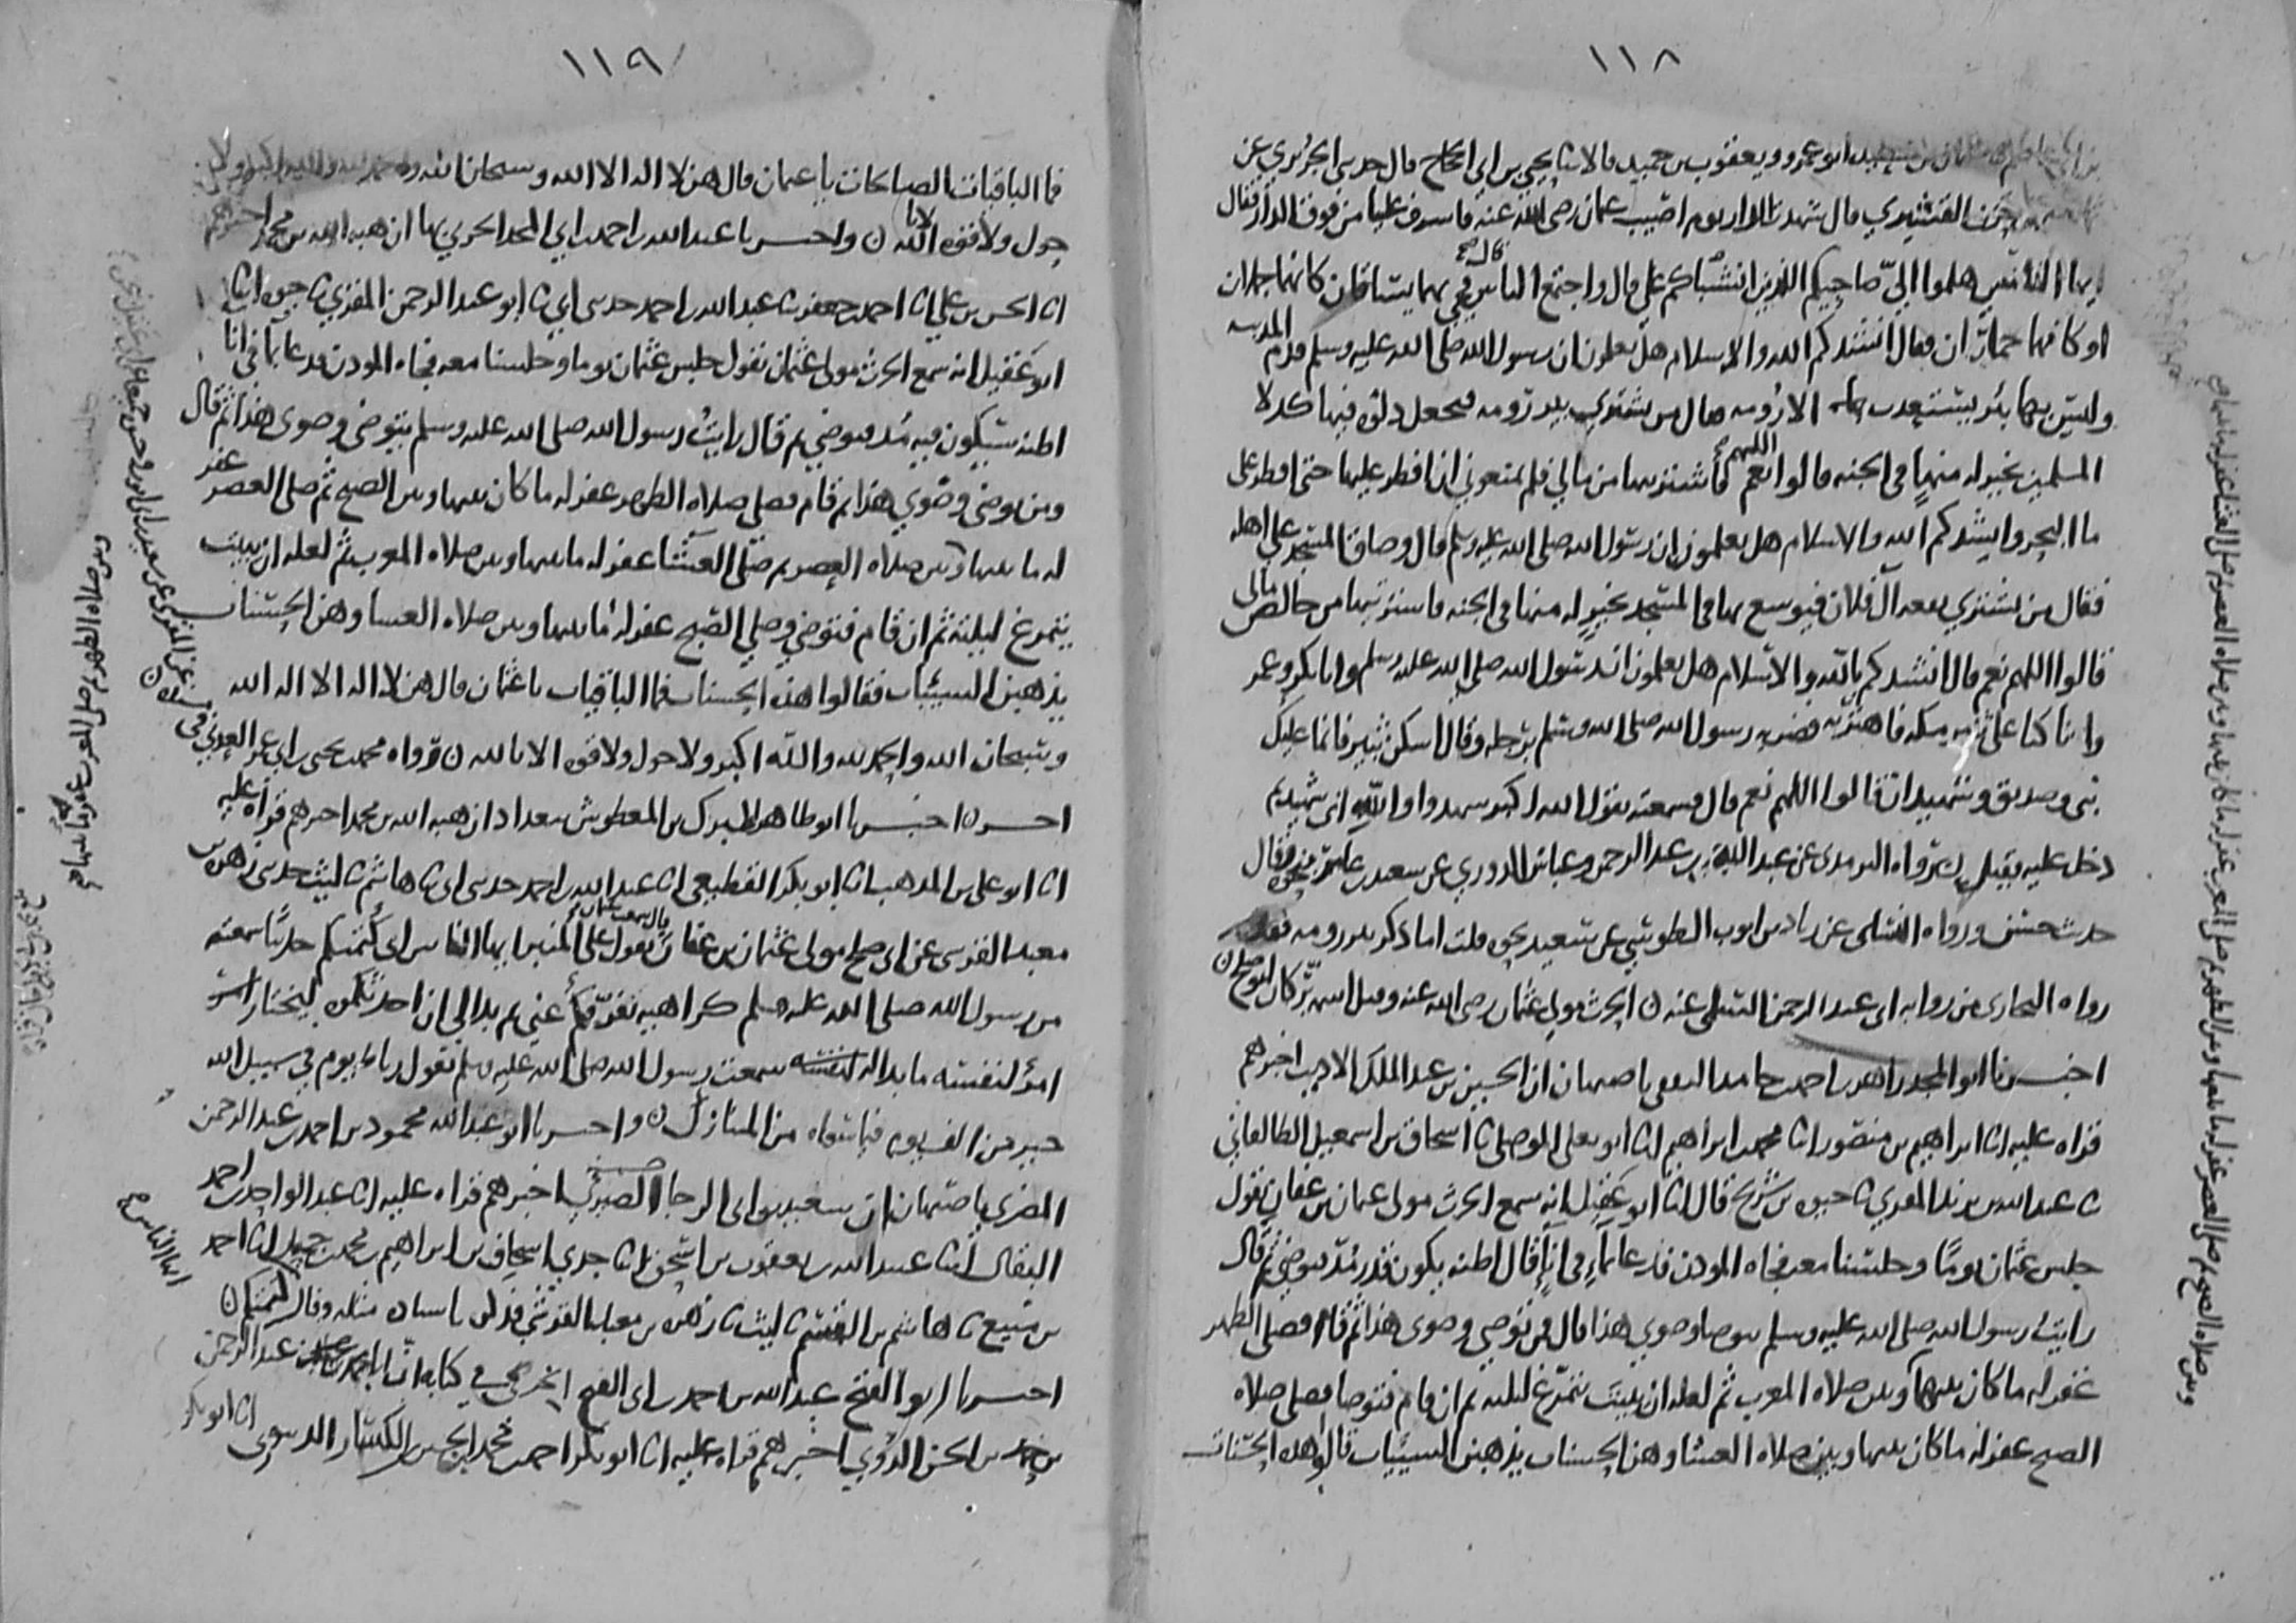 ١١٨
ابو عمرو ويعقوب بن حميد قالا ثنا يحيى بن ابي الحجاج قال حدثني الجريري عن
القشيري قال شهدت الدار يوم اصيب عثمان رضي الله عنه فاشرف علينا من فوق الدار فقال
يا ايها الناس هلموا الي صاحبيكم اللذين انشباكم علي قال واجتمع الناس قال فجيء بهما يتساقان كانهما جملان
او كانهما حماران فقال انشدكم الله والاسلام هل تعلمون ان رسول الله صلى الله عليه وسلم قدم المدينه
وليس بها بئر يستعذب الا رومه فقال من يشتري بير رومه فيجعل دلوه فيها كدلا
المسلمين بخير له منها في الجنه قالوا اللهم نعم قال فاشتريتها من مالي فلم تمنعوني ان افطر عليها حتى افطر على
ما البحر وانشدكم الله والاسلام هل تعلمون ان رسول الله صلى الله عليه وسلم قال وضاق المسجد على اهله
فقال من يشتري بقعه آل فلان فيوسع بها في المسجد بخير له منها في الجنه فاشتريتها من خالص مالي
قالوا اللهم نعم قال انشدكم بالله والاسلام هل تعلمون ان رسول الله صلى الله عليه وسلم وابا بكر وعمر
وانا كنا على ثبير مكه فاهتز به فضربه رسول الله صلى الله عليه وسلم برجله وقال اسكن ثبير فانما عليك
نبي وصديق وشهيدان قالوا اللهم نعم قال فسمعته يقول الله اكبر شهدوا والله اني شهيد
دخل عليه بقليل ن رواه الترمذي عن عبد الله بن عبد الرحمن وعباس الدوري عن سعيد بن عامر بنحوه وقال
حديث حسن ورواه النسائي عن زياد بن ايوب الطوسي عن سعيد نحوه قلت اما ذكر بير رومه فقد
رواه البخاري من روايه ابي عبد الرحمن السلمي عنه ن الحرث مولى عثمان رضي الله عنه وقيل اسمه تركان ابو صالح ن
اخبرنا ابو المجد زاهر بن احمد بن حامد الثقفي باصبهان ان الحسين بن عبد الملك الاديب اخبرهم
قراه عليه انا ابراهيم بن منصور انا محمد بن ابراهيم انا ابو يعلى الموصلي ثنا اسحاق بن اسمعيل الطالقاني
ثنا عبد الله بن يزيد المقري ثنا حيوه بن شريح قال انا ابو عقيل انه سمع الحرث مولى عثمان بن عفان يقول
جلس عثمان يوما وجلسنا معه فجاه المؤذن فدعا بماء في اناء قال اظنه يكون قدر مد فتوضي ثم قال
رايت رسول الله صلى الله عليه وسلم يتوضا وضوي هذا قال من توضي وضوي هذا ثم قام فصلى الظهر
غفر له ما كان بينهما وبين صلاه المغرب ثم لعله ان يبيت يتمرغ ليلته ثم ان قام فتوضا فصلى صلاه
الصبح غفر له ما كان بينها وبين صلاه العشا وهن الحسنات يذهبن السيئات قالوا هذه الحسنات
وبين صلاه الصبح ثم صلى العصر غفر له ما بينها وبين الظهر ثم صلى المغرب غفر له ما كان بينها وبين صلاه العصر ثم صلى العشا غفر له ما بينهما
١١٩
فما الباقيات الصالحات يا عثمان قال هن لا اله الا الله وسبحان الله والحمد لله والله اكبر ولا
حول ولا قوه الا بالله ن واخبرنا عبد الله بن احمد بن ابي المجد الحربي بها ان هبه الله بن محمد اخبرهم
انا الحسن بن علي انا احمد بن جعفر ثنا عبد الله بن احمد حدثني ابي ثنا ابو عبد الرحمن المقري ثنا حيوه انا
ابو عقيل انه سمع الحرث مولى عثمان يقول جلس عثمان يوما وجلسنا معه فجاه المؤذن فدعا بماء في انا
اظنه سيكون فيه مد فتوضي ثم قال رايت رسول الله صلى الله عليه وسلم يتوضي وضوي هذا ثم قال
ومن توضي وضوي هذا ثم قام فصلى صلاه الظهر غفر له ما كان بينها وبين الصبح ثم صلى العصر غفر
له ما بينها وبين صلاه العصر ثم صلى العشا غفر له ما بينها وبين صلاه المغرب ثم لعله ان يبيت
يتمرغ ليلته ثم ان قام فتوضي وصلى الصبح غفر له ما بينها وبين صلاه العشا وهن الحسنات
يذهبن السيئات فقالوا هذه الحسنات فما الباقيات يا عثمان قال هن لا اله الا الله
وسبحان الله والحمد لله والله اكبر ولا حول ولا قوه الا بالله ن رواه محمد بن يحيى بن ابي عمر العدني في مسنده ن
عن المقري عن سعيد بن ابي ايوب
اخبرنا ابو طاهر المبارك بن المعطوش ببغداد ان هبه الله بن محمد اخبرهم قراه عليه
انا ابو علي بن المذهب انا ابو بكر القطيعي انا عبد الله بن احمد حدثني ابي ثنا هاشم ثنا ليث حدثني زهره بن
معبد القرشي عن ابي صالح مولى عثمان بن عفان قال سمعت عثمان يقول على المنبر ايها الناس اني كتمتكم حديثا سمعته
من رسول الله صلى الله عليه وسلم كراهيه تفرقكم عني ثم بدا لي ان احدثكموه ليختار
امرؤ لنفسه ما بدا له سمعت رسول الله صلى الله عليه وسلم يقول رباط يوم في سبيل الله
خير من الف يوم فيما سواه من المنازل ن واخبرنا ابو عبد الله محمود بن احمد بن عبد الرحمن
المضري باصبهان ان سعيد بن ابي الرجا الصيرفي اخبرهم قراه عليه انا عبد الواحد بن احمد
البقال انا عبيد الله بن يعقوب بن اسحق انا جدي اسحاق بن ابراهيم بن محمد بن جميل انا احمد
بن منيع ثنا هاشم بن القسم ثنا ليث ثنا زهره بن معبد القرشي فذكره باسناده مثله وقال كتمتكم ن
اخبرنا ابو الفتح عبد الله بن احمد بن ابي الفتح الخرقي في كتابه ان ابا محمد عبد الرحمن
بن حمد بن الحسن الدوني اخبرهم قراه عليه انا ابو بكر احمد بن محمد بن الحسين الكسار الدينوري انا ابو بكر
وبين صلاه الظهر ثم صلى المغرب غفر له ما بينها
ايها الناس